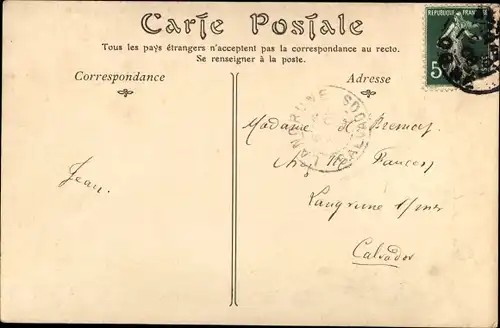 Carte Postale
Tous les pays étrangers n'acceptent pas la correspondance au recto.
Se renseigner à la poste.
Correspondance
Adresse
REPUBLIQUE FRANCAISE
5
LANGRUNE CALVADOS
Madame
Langrune s/mer
Calvados
Jean.